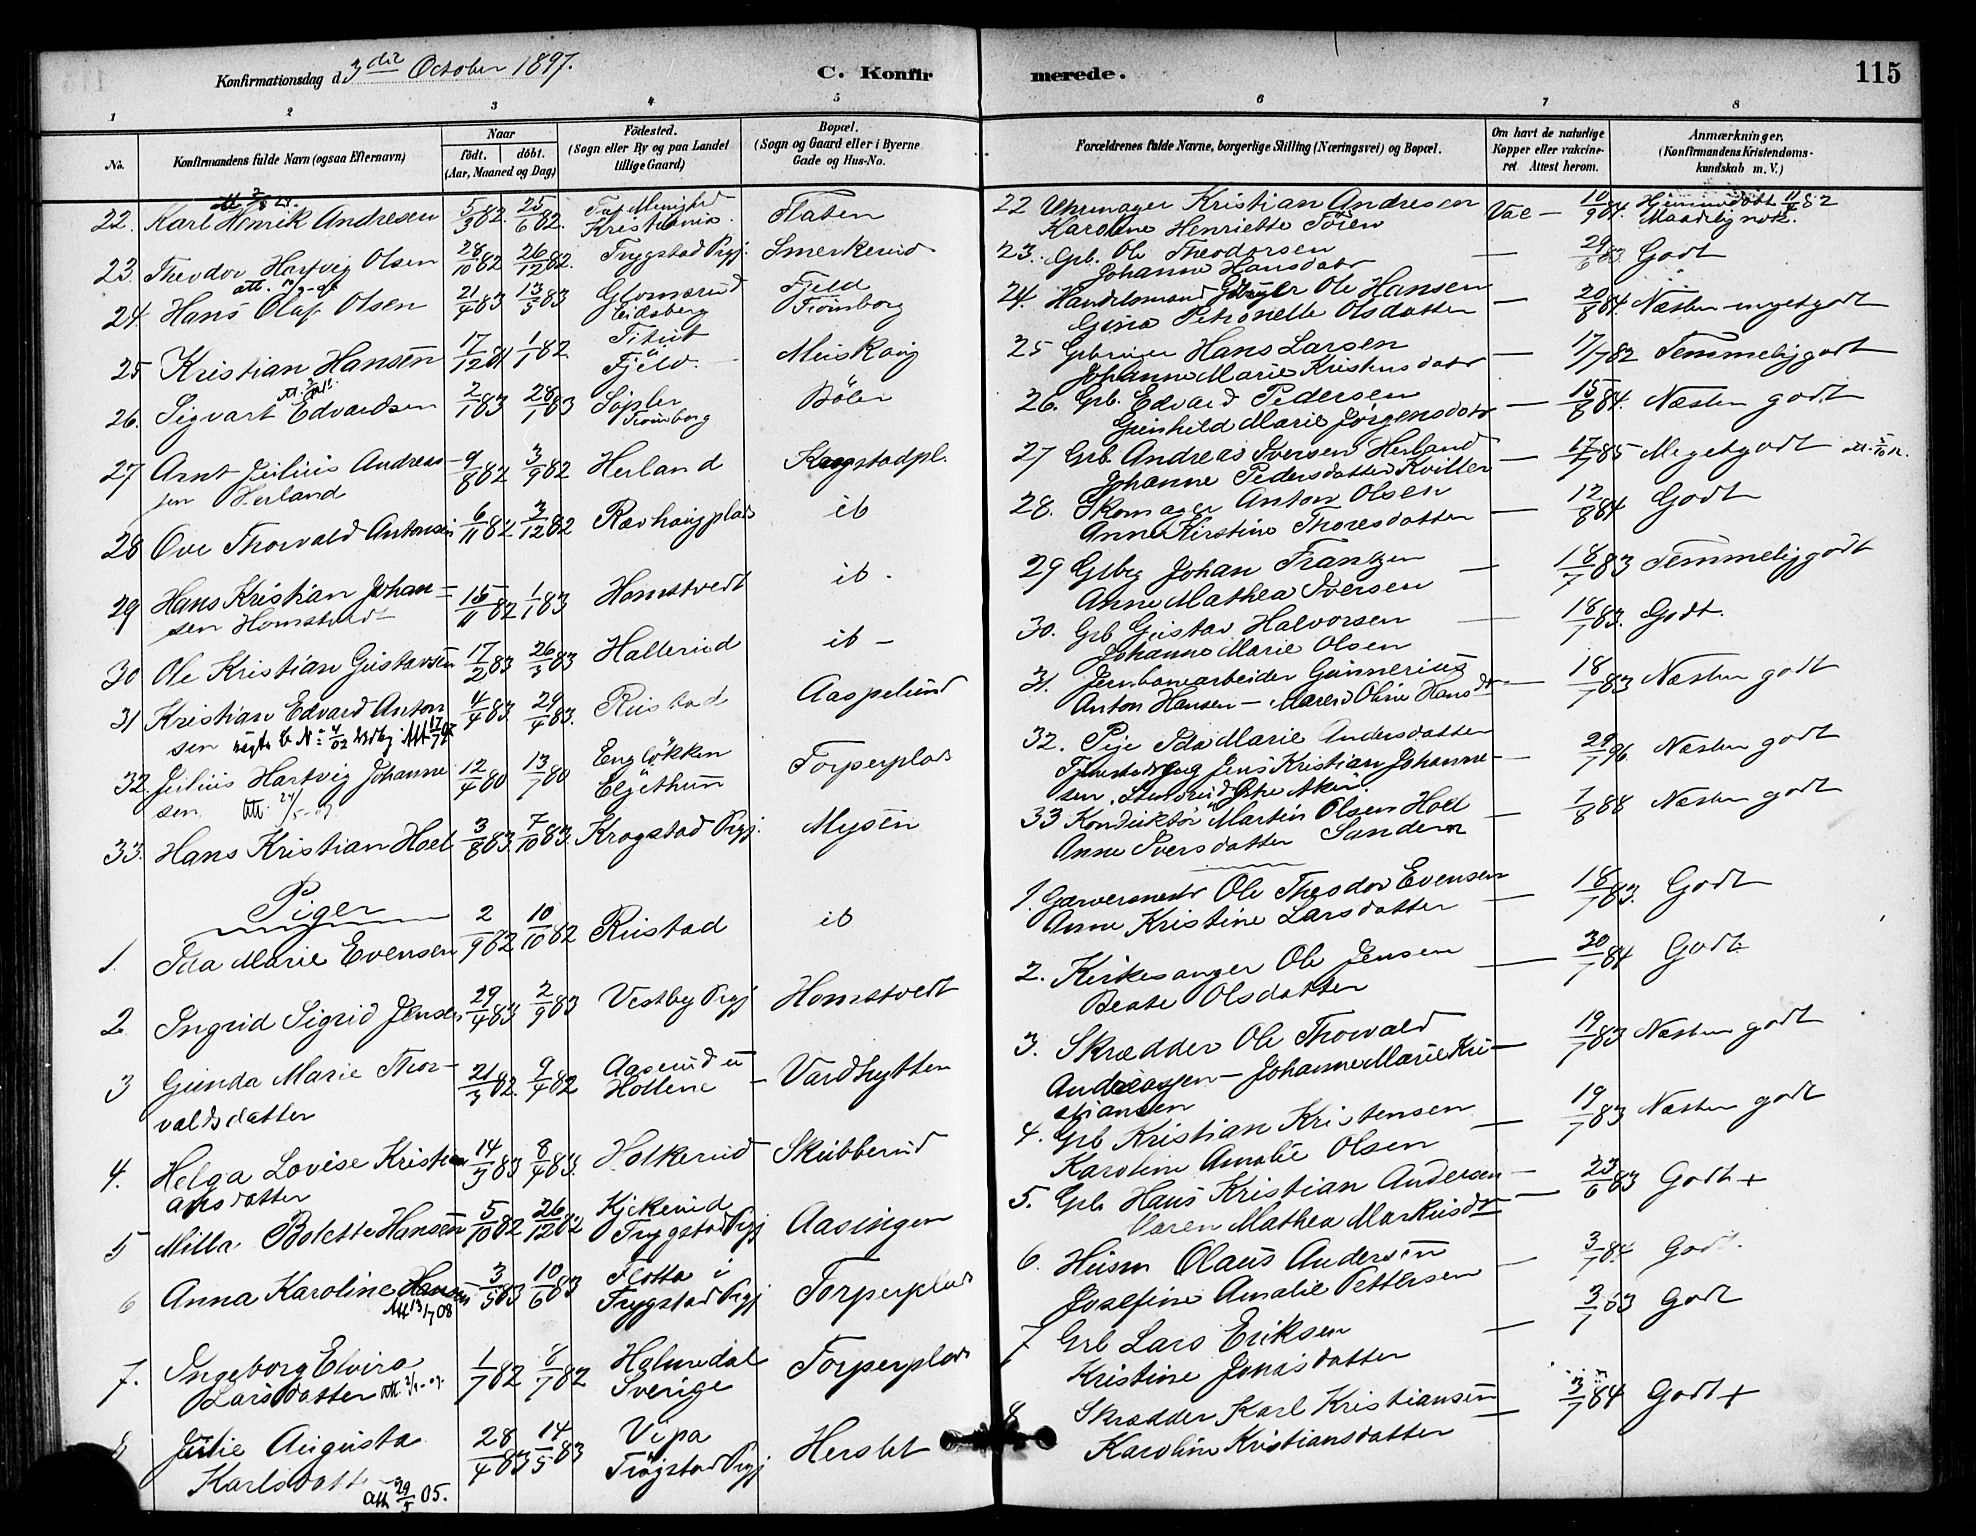 Konfirmationsdag d 3die October 1897.
C. Konfirmerede.
115
1 2 3 4 5 6 7 8
No.
Konfirmandens fulde Navn (ogsaa Efternavn)
Naar
födt. döbt.
(Aar, Maaned og Dag)
Födested.
(Sogn eller By og paa Landet
tillige Gaard)
Bopæl.
(Sogn og Gaard eller i Byerne
Gade og Hus-No.
Forældrenes fulde Navne, borgerlige Stilling (Næringsvei) og Bopæl.
Om havt de naturlige
Kopper eller vakcine-
ret Attest herom.
Anmærkninger.
(Konfirmandens Kristendoms-
kundskab m. V.)
22. Karl Henrik Andresen 5/3 82. 25/6 82. Kristiania. Flaten
22 Uhrmager Kristian Andresen Vac — 10/9 84.
Karoline Henriette Maadelig nok.
23. Theodor Hartvig Olsen 28/10 82 26/12 82. Trygstad Prgj. Smerkerud
23. Grb. Ole Theodorsen — 29/6 83 Godt
Johanne Hansdatr
24. Hans Olaf Olsen 21/4 83 13/5 83 Glomsrud Fjeld
Eidsberg Trömborg
24. Handelsmand Ole Hansen — 20/8 84 Næsten meget godt
Gina Petronelle Olsdatter
25 Kristian Hansen 17/12 81 1/1 82. Fjeld. —
25 Gbruger Hans Larsen — 17/7 82 Temmelig godt
Johanne Marie
26. Sigvart Edvardsen 2/1 83 28/1 83 Böler
Trömborg
26. Grb. Edvard Pedersen — 15/8 84. Næsten godt
Gunhild Marie Jørgensdatr
27 Arnt Julius Andreas- 9/8 82 3/9 82 Herland Krogstadpl.
sen Herland
27 Grb Andreas Iversen Herland — 17/7 85 Meget godt
Johanne Pedersdatter Kviller
28 Ove Thorvald Antonsen 6/11 82 3/12 82 Ravhaugplads ib
28. Skomager Anton Olsen — 12/8 84 Godt
Anne Kirstine Thoresdatter
29 Hans Kristian Johan- 15/11 82 1/1 83 Homstvedt ib.
sen Homstvedt
29 Glbrg Johan Frantzen — 18/7 83 Temmelig godt
Anne Mathea Iversen
30 Ole Kristian Gustavsen 17/2 83 26/3 83 Hallerud ib —
30. Grb Gustav Halvorsen — 18/7 83. Godt.
Johanne Marie Olsen
31 Kristian Edvard Anton 4/4 83. 29/4 83. Rustad Aaspelund
sen
31. Jernbanearbeider Gunnerius — 18/7 83 Næsten godt
Anton Hansen — Maren Oline Hansdr
32. Julius Hartvig Johanne 12/4 80 13/7 80 Englökken Torperplads
sen. Att. 24/5-09.
32. Pige Ida Marie Andersdatter
Jens Kristian Johanne- — 29/7 96 Næsten godt
sen.
33. Hans Kristian Hoel 3/8 83. 7/10 83. Krogstad Prgj. Mysen
33 Konduktör Martin Olsen Hoel — 7/8 88 Næsten godt
Anne Iversdatter
Piger
1. Ida Marie Evensen 2/9 82 10/10 82 Rustad ib
1. Garvermestr Ole Theodor Evensen — 18/7 83. Godt
Anne Kristine Larsdatter
2 Ingrid Sigrid Jensen 29/4 83 2/9 83 Vestby Prgj Homstvedt
2. Kirkesanger Ole Jensen — 30/7 84 Godt.
Beate Olsdatter
3 Gunda Marie Thor- 21/3 82. 9/4 82 — Vardhytten
valdsdatter
3. Skrædder Ole Thorvald
Andreassen — Johanne Marie Kri- — 19/7 83 Næsten godt
stiansen
4. Helga Lovise Kristi 14/3 83 8/4 83. Holkerud Skubberud
ansdatter
4. Grb Kristian Kristensen — 19/7 83 Næsten godt
Karoline Amalie Olsen
5 Milla Bolette Hansen 5/10 82 26/12 82 Kjekerud Aasingen
Trygstad Prgj
5. Grb Hans Kristian Andersen — 23/6 83 Godt +
Maren Mathea Markusdr
6 Anna Karoline Hansen 3/5 83 10/6 83 Flotta i Torperplads
Att 13/7 08 Trygstad Prgj
6. Husm Olaus Andersen — 3/7 84 Godt.
Josefine Amalie Pettersen
7. Ingeborg Elvira 1/7 82 8/7 82 Torperplads
Larsdatter Sverige
7 Grb Lars Eriksen — 3/7 83 Godt
Kristine Jonasdatter
8 Julie Augusta 28/4 83 14/5 83 Vipa Herslet
Karlsdatt Att 29/5 05. Trögstad Prgj
8 Skrædder Karl Kristiansen — 3/7 84 Godt +
Karoline Kristiansdatter